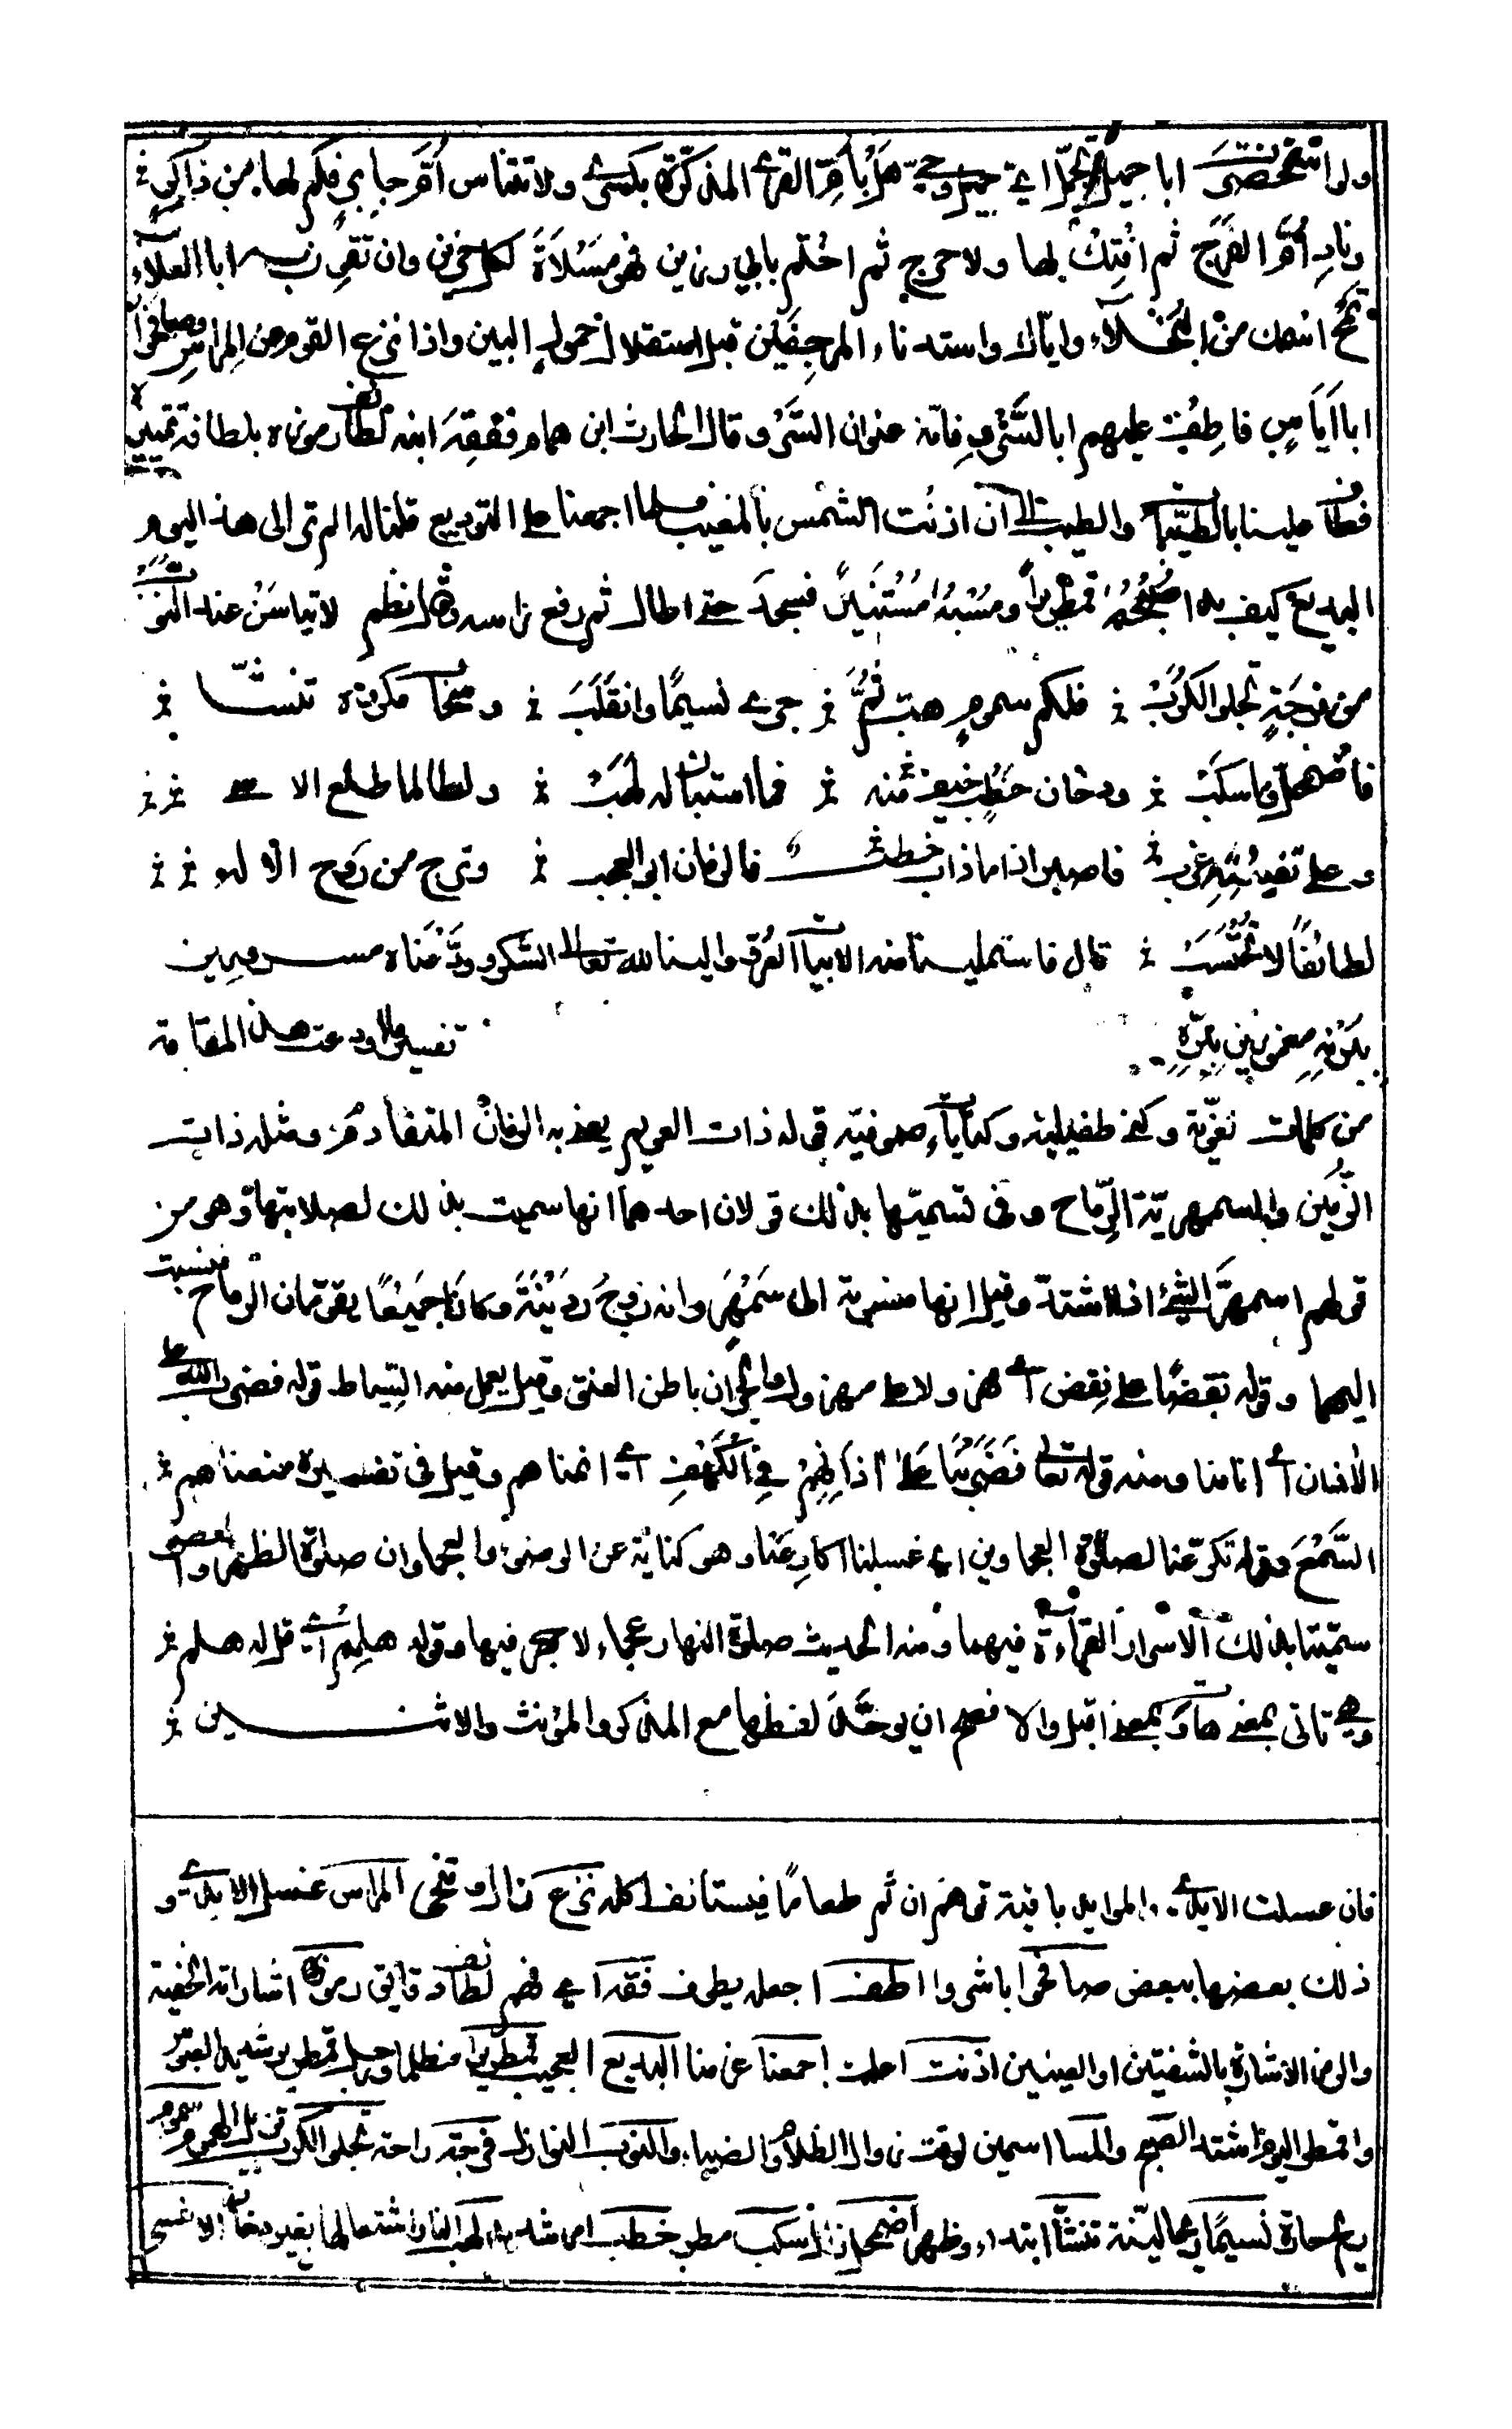 ولو استحضرت ابا جميل لجمل اي جميل وحي هل بأم القرى المذكرة بكسرى ولا تتناس أم جابر فكم لها من ذاكر
وناد أم الفرج ثم افتك بها ولا حرج ثم اختم بابي رزين فهو مسلاة لكل حزين وان تقرن به ابا العلاء
تمح اسمك من البخلاء واياك واستدناء المرجفين قبل استقلال حمول البين واذا نزع القوم عن المراس وصافحوا
ابا اياس فاطف عليهم ابا السرو فانه عنوان السرو قال الحارث ابن همام ففقه ابنه لطائف رموزه بلطافة تمييزه
فطاف علينا بالطيبات والطيب الى ان اذنت الشمس بالمغيب فلما اجمعنا على التوديع قلنا له الم تر الى هذا اليوم
البديع كيف بدا صبحه قمطريرا ومسيه مستنيرا فسجد حتى اطال ثم رفع راسه وقال نظم لا تياسن عند النوب
من فرجة تجلو الكرب فلكم سموم هب ثم جرى نسيما وانقلب وسحاب مكروه تنشا
فاضمحل وما سكب ودخان خطب خيف منه فما استبان له لهب ولطالما طلع الاسى
وعلى تفيئته غرب فاصبر اذا ما ناب خطب فالزمان ابو العجب وترج من روح الاله
لطائفا لا تحتسب قال فاستملينا منه الابيات الغر ووالينا لله تعالى الشكر وودعناه مسرورين
ببرئه مغمورين ببره تفسير ما اودعت هذه المقامة
من كلمات لغوية وكنى طفيلية وكنايات صوفية قوله ذات العويم يعني به الزمان المتقادم ومثله ذات
الزمين والسمهرية الرماح وفي تسميتها بذلك قولان احدهما انها سميت بذلك لصلابتها وهو من
قولهم اسمهر الشيء اذا اشتد وقيل انها منسوبة الى سمهر وانه زوج ردينة وكانا جميعا يقومان الرماح فنسبت
اليهما وقوله نقضا على نقض اي هزولا على مهزول والجران باطن العنق وقيل يعمل منه السياط قوله فضرب الله على
الاذان اي انامنا ومنه قوله تعالى فضربنا على اذانهم في الكهف اي انمناهم وقيل في تفسيره منعناهم
السمع وقوله تكرعنا لصلوة العجماوين اي غسلنا اكارعنا وهو كناية عن الوضوء والعجماوان صلوة الظهر والعصر
سميتا بذلك لاسرار القراءة فيهما ومنه الحديث صلوة النهار عجماء لا جهر فيها وقوله هلمم اي قل له هلم
وهي تاتي بمعنى هات وبمعنى اقبل والافصح ان يوحد لفظها مع المذكر والمؤنث والاثنين
فان غسلت الايدي والموائد باقية توهم ان ثم طعاما فيستانف اكله نزع زال وتنحى المراس غسل الايدي و
ذلك بعضها ببعض صافحوا باشروا اطف اجعله يطوف فقه اي فهم لطائف دقائق رموزه اشاراته الخفية
والرمز الاشارة بالشفتين او العينين اذنت اعلمت اجمعنا عزمنا البديع العجيب قمطريرا مظلما وجبل قمطرير شديد العبوس
واقمطر اليوم اشتد الصبح والمسا اسمين لوقت زوال الظلام والضياء والنوب النوازل فرجة راحة تجلو الكرب تزيل الهموم سموم
ريح حارة نسيما ريحا لينة تنشا ابتداء وظهر اضمحل زال سكب مطر خطب امر شديد لهب النار اشتعالها بغير دخان الاسى